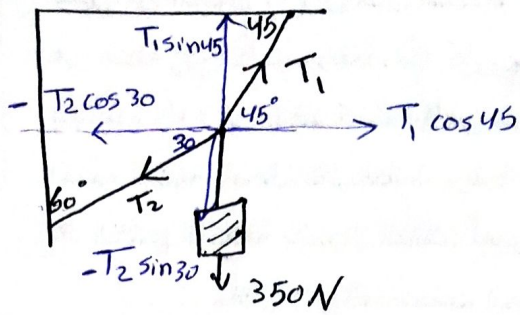 45
T₁ sin45
T₁
- T₂ cos30
45°
T₁ cos 45
30
60°
T₂
-T₂ sin30
350N